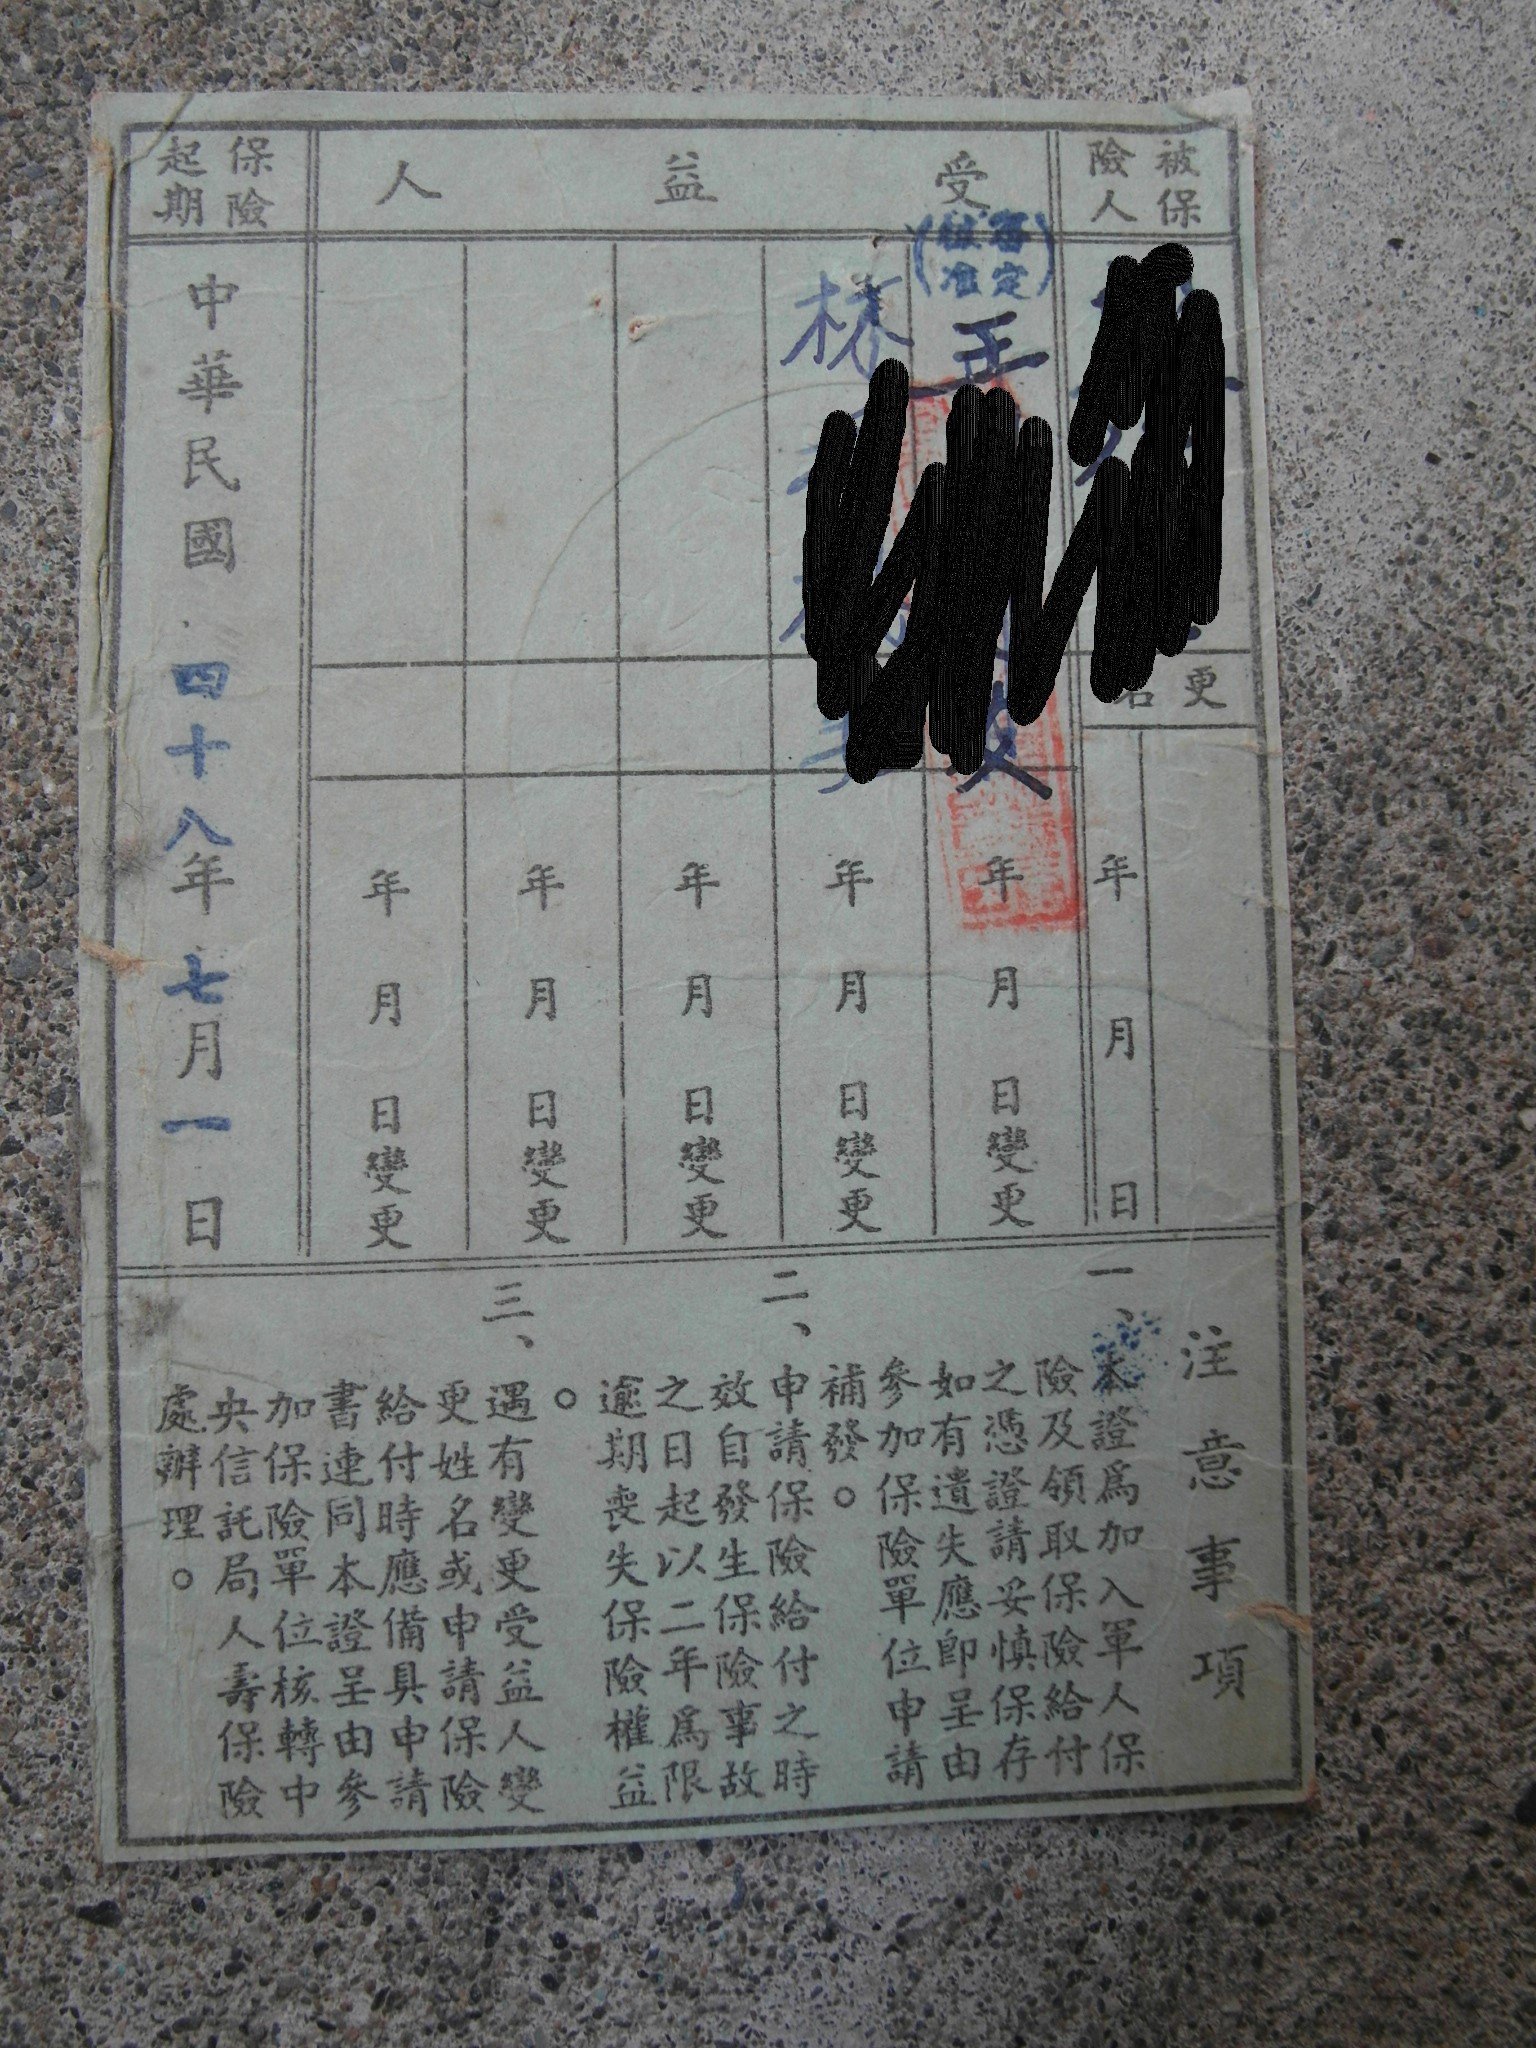 被保險人
更名
年 月 日
受益人
審定核准
王
年 月 日變更
林
年 月 日變更
年 月 日變更
年 月 日變更
年 月 日變更
保險起期
中華民國四十八年七月一日
注意事項
一、本證爲加入軍人保
險及領取保險給付
之憑證請妥慎保存
如有遺失應即呈由
參加保險單位申請
補發。
二、申請保險給付之時
效自發生保險事故
之日起以二年爲限
逾期喪失保險權益
。
三、遇有變更受益人變
更姓名或申請保險
給付時應備具申請
書連同本證呈由參
加保險單位核轉中
央信託局人壽保險
處辦理。